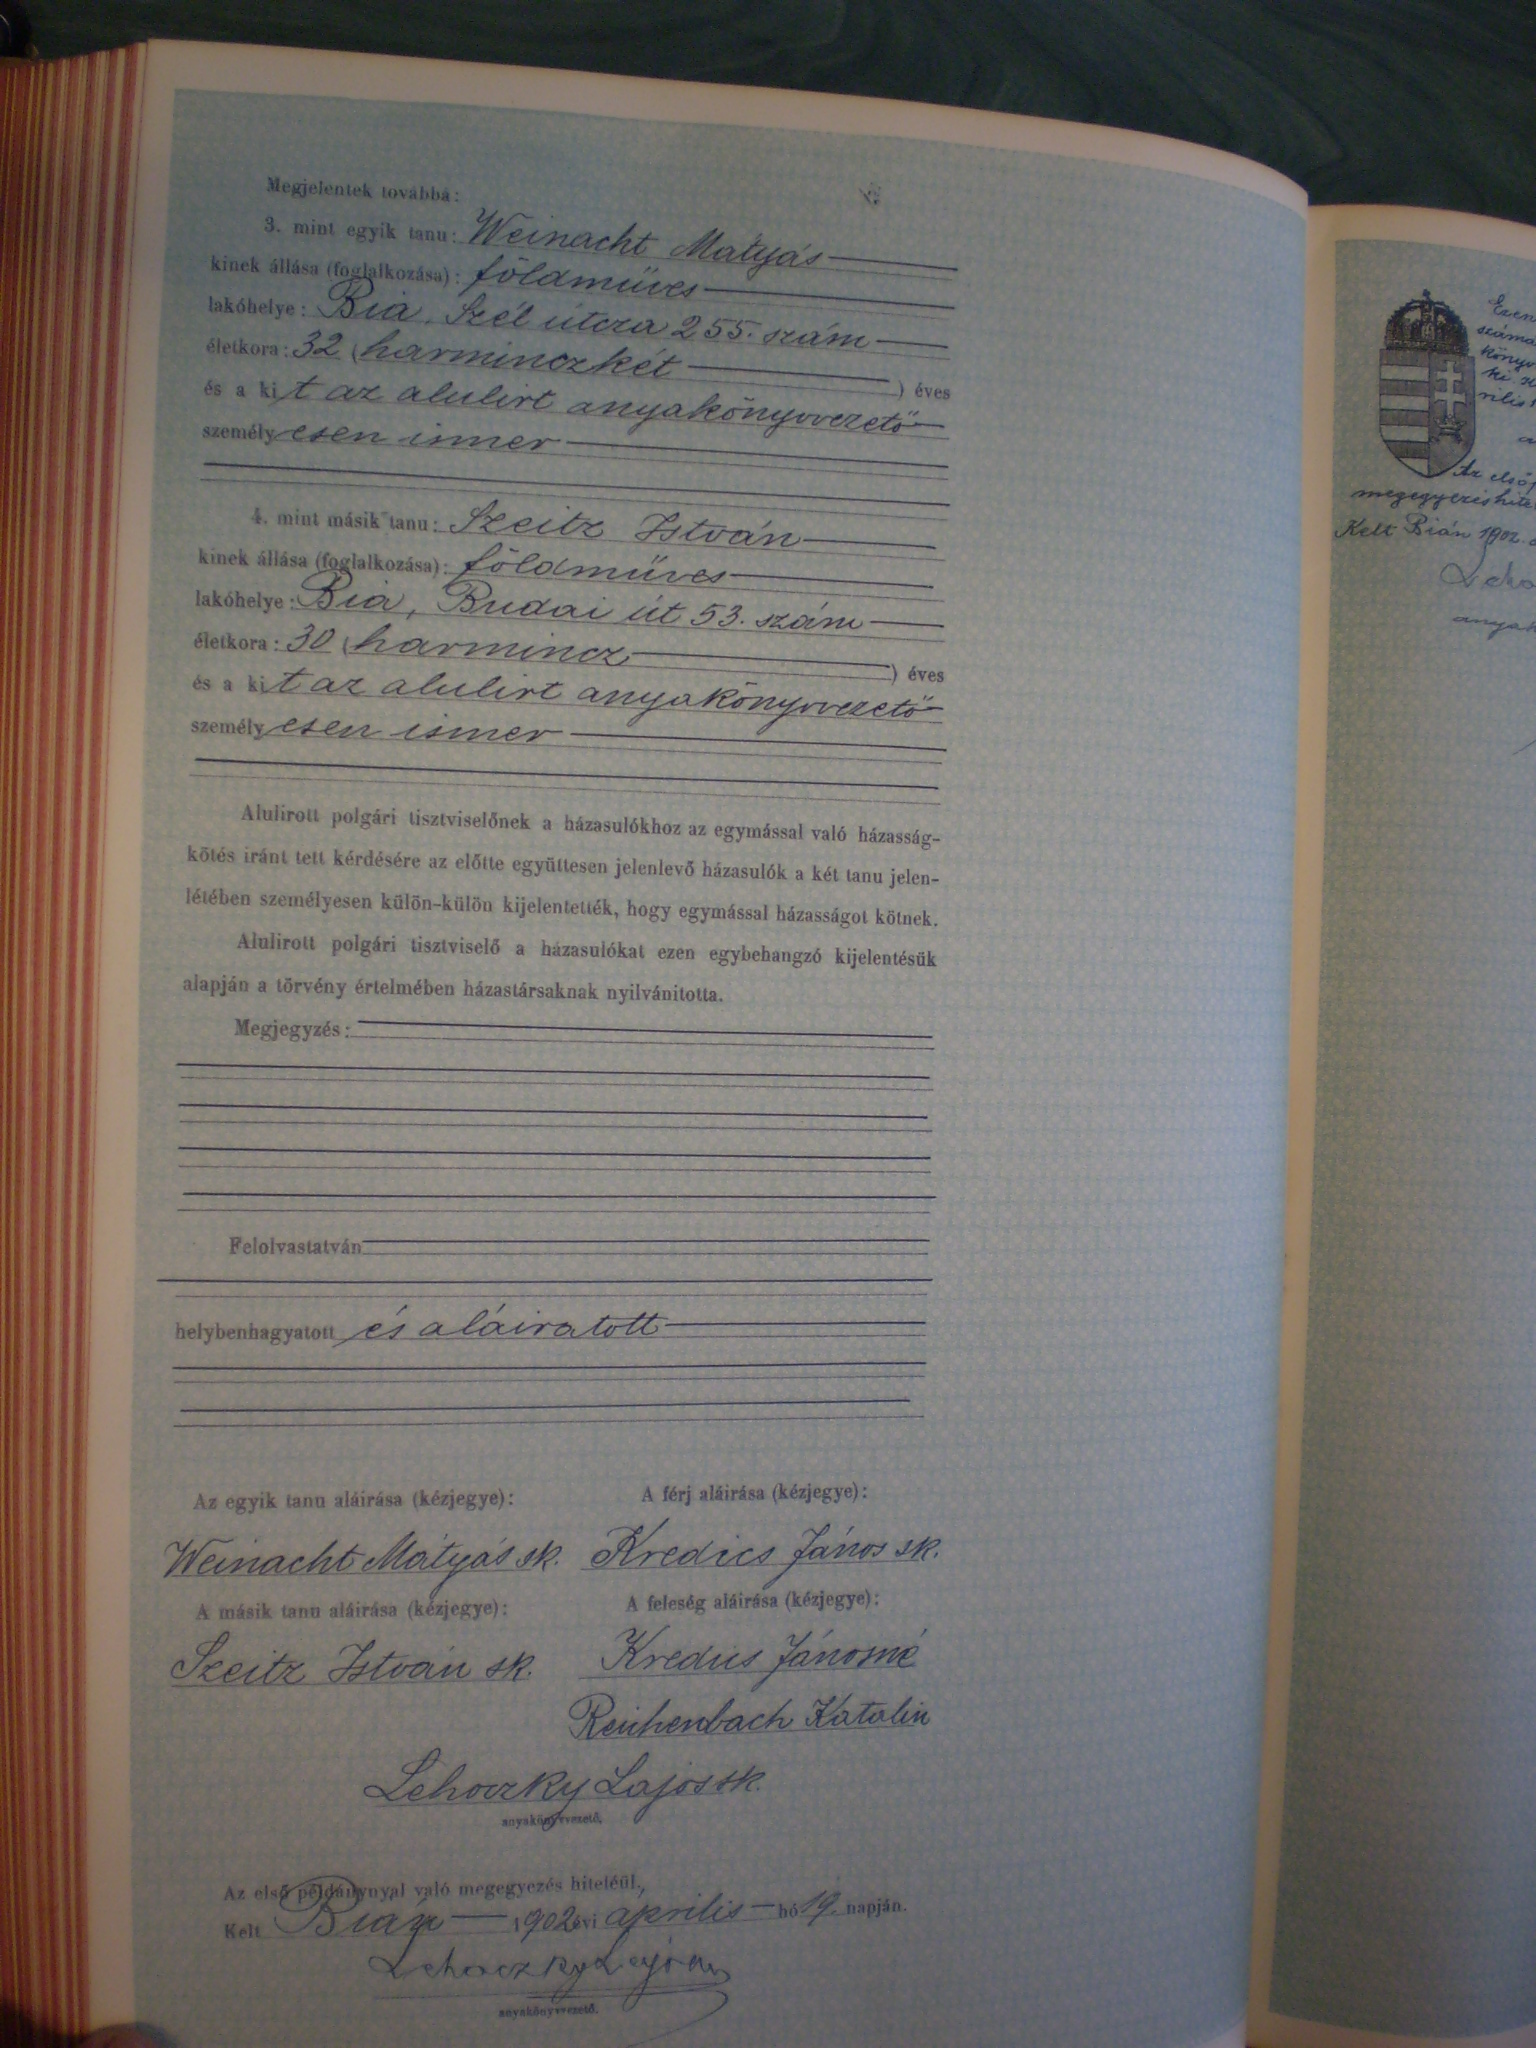 Megjelentek továbbá:
3. mint egyik tanu: Weinacht Mátyás
kinek állása (foglalkozása): földműves
lakóhelye: Bia, Szél útcza 255. szám
életkora: 32 (harminczkét) éves
és a kit az alulirt anyakönyvvezető
személyesen ismer
4. mint másik tanu: Szeitz István
kinek állása (foglalkozása): földműves
lakóhelye: Bia, Budai út 53. szám
életkora: 30 (harmincz) éves
és a kit az alulirt anyakönyvvezető
személyesen ismer
Alulirott polgári tisztviselőnek a házasulókhoz az egymással való házasság-
kötés iránt tett kérdésére az előtte együttesen jelenlevő házasulók a két tanu jelen-
létében személyesen külön-külön kijelentették, hogy egymással házasságot kötnek.
Alulirott polgári tisztviselő a házasulókat ezen egybehangzó kijelentésük
alapján a törvény értelmében házastársaknak nyilvánitotta.
Megjegyzés:
Felolvastatván
helybenhagyatott és aláiratott
Az egyik tanu aláirása (kézjegye): A férj aláirása (kézjegye):
Weinacht Mátyás sk. Kredics János sk.
A másik tanu aláirása (kézjegye): A feleség aláirása (kézjegye):
Szeitz István sk. Kredics Jánosné
Reichenbach Katalin
Lehoczky Lajos sk.
anyakönyvvezető.
Az első példánynyal való megegyezés hiteléül.
Kelt Bián 1902 évi április hó 19. napján.
Lehoczky Lajos
anyakönyvvezető.
Ezen
száma
könyv
Az első
megegyezés hite
Kelt Bián 1902.